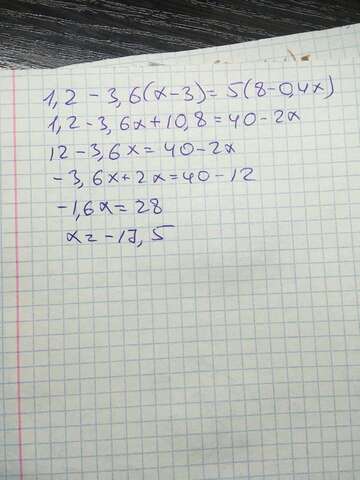 1,2 - 3,6(x-3) = 5(8-0,4x)
1,2 - 3,6x + 10,8 = 40 - 2x
12 - 3,6x = 40 - 2x
-3,6x + 2x = 40 - 12
-1,6x = 28
x = -17,5